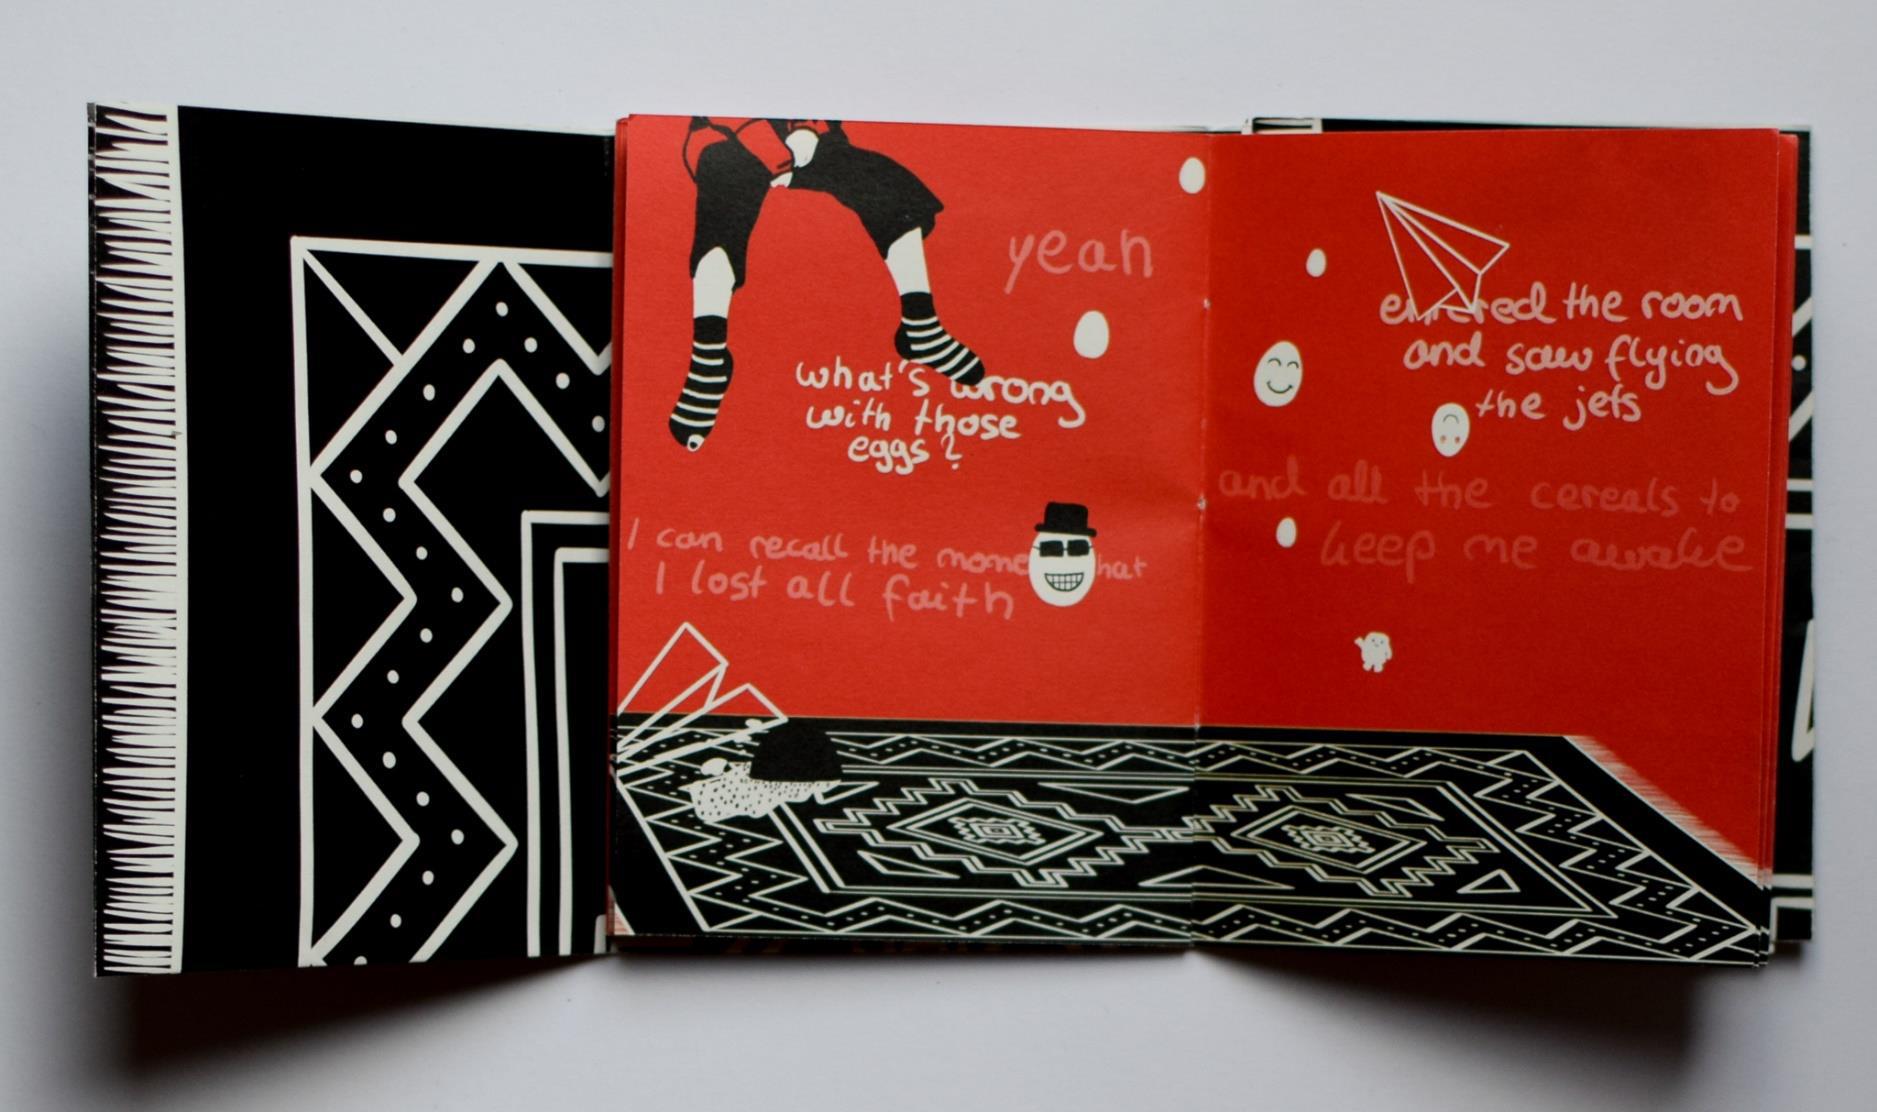 yeah
what's wrong
with those
eggs?
I can recall the mome hat
I lost all faith
entered the room
and saw flying
the jets
and all the cereals to
keep me awake